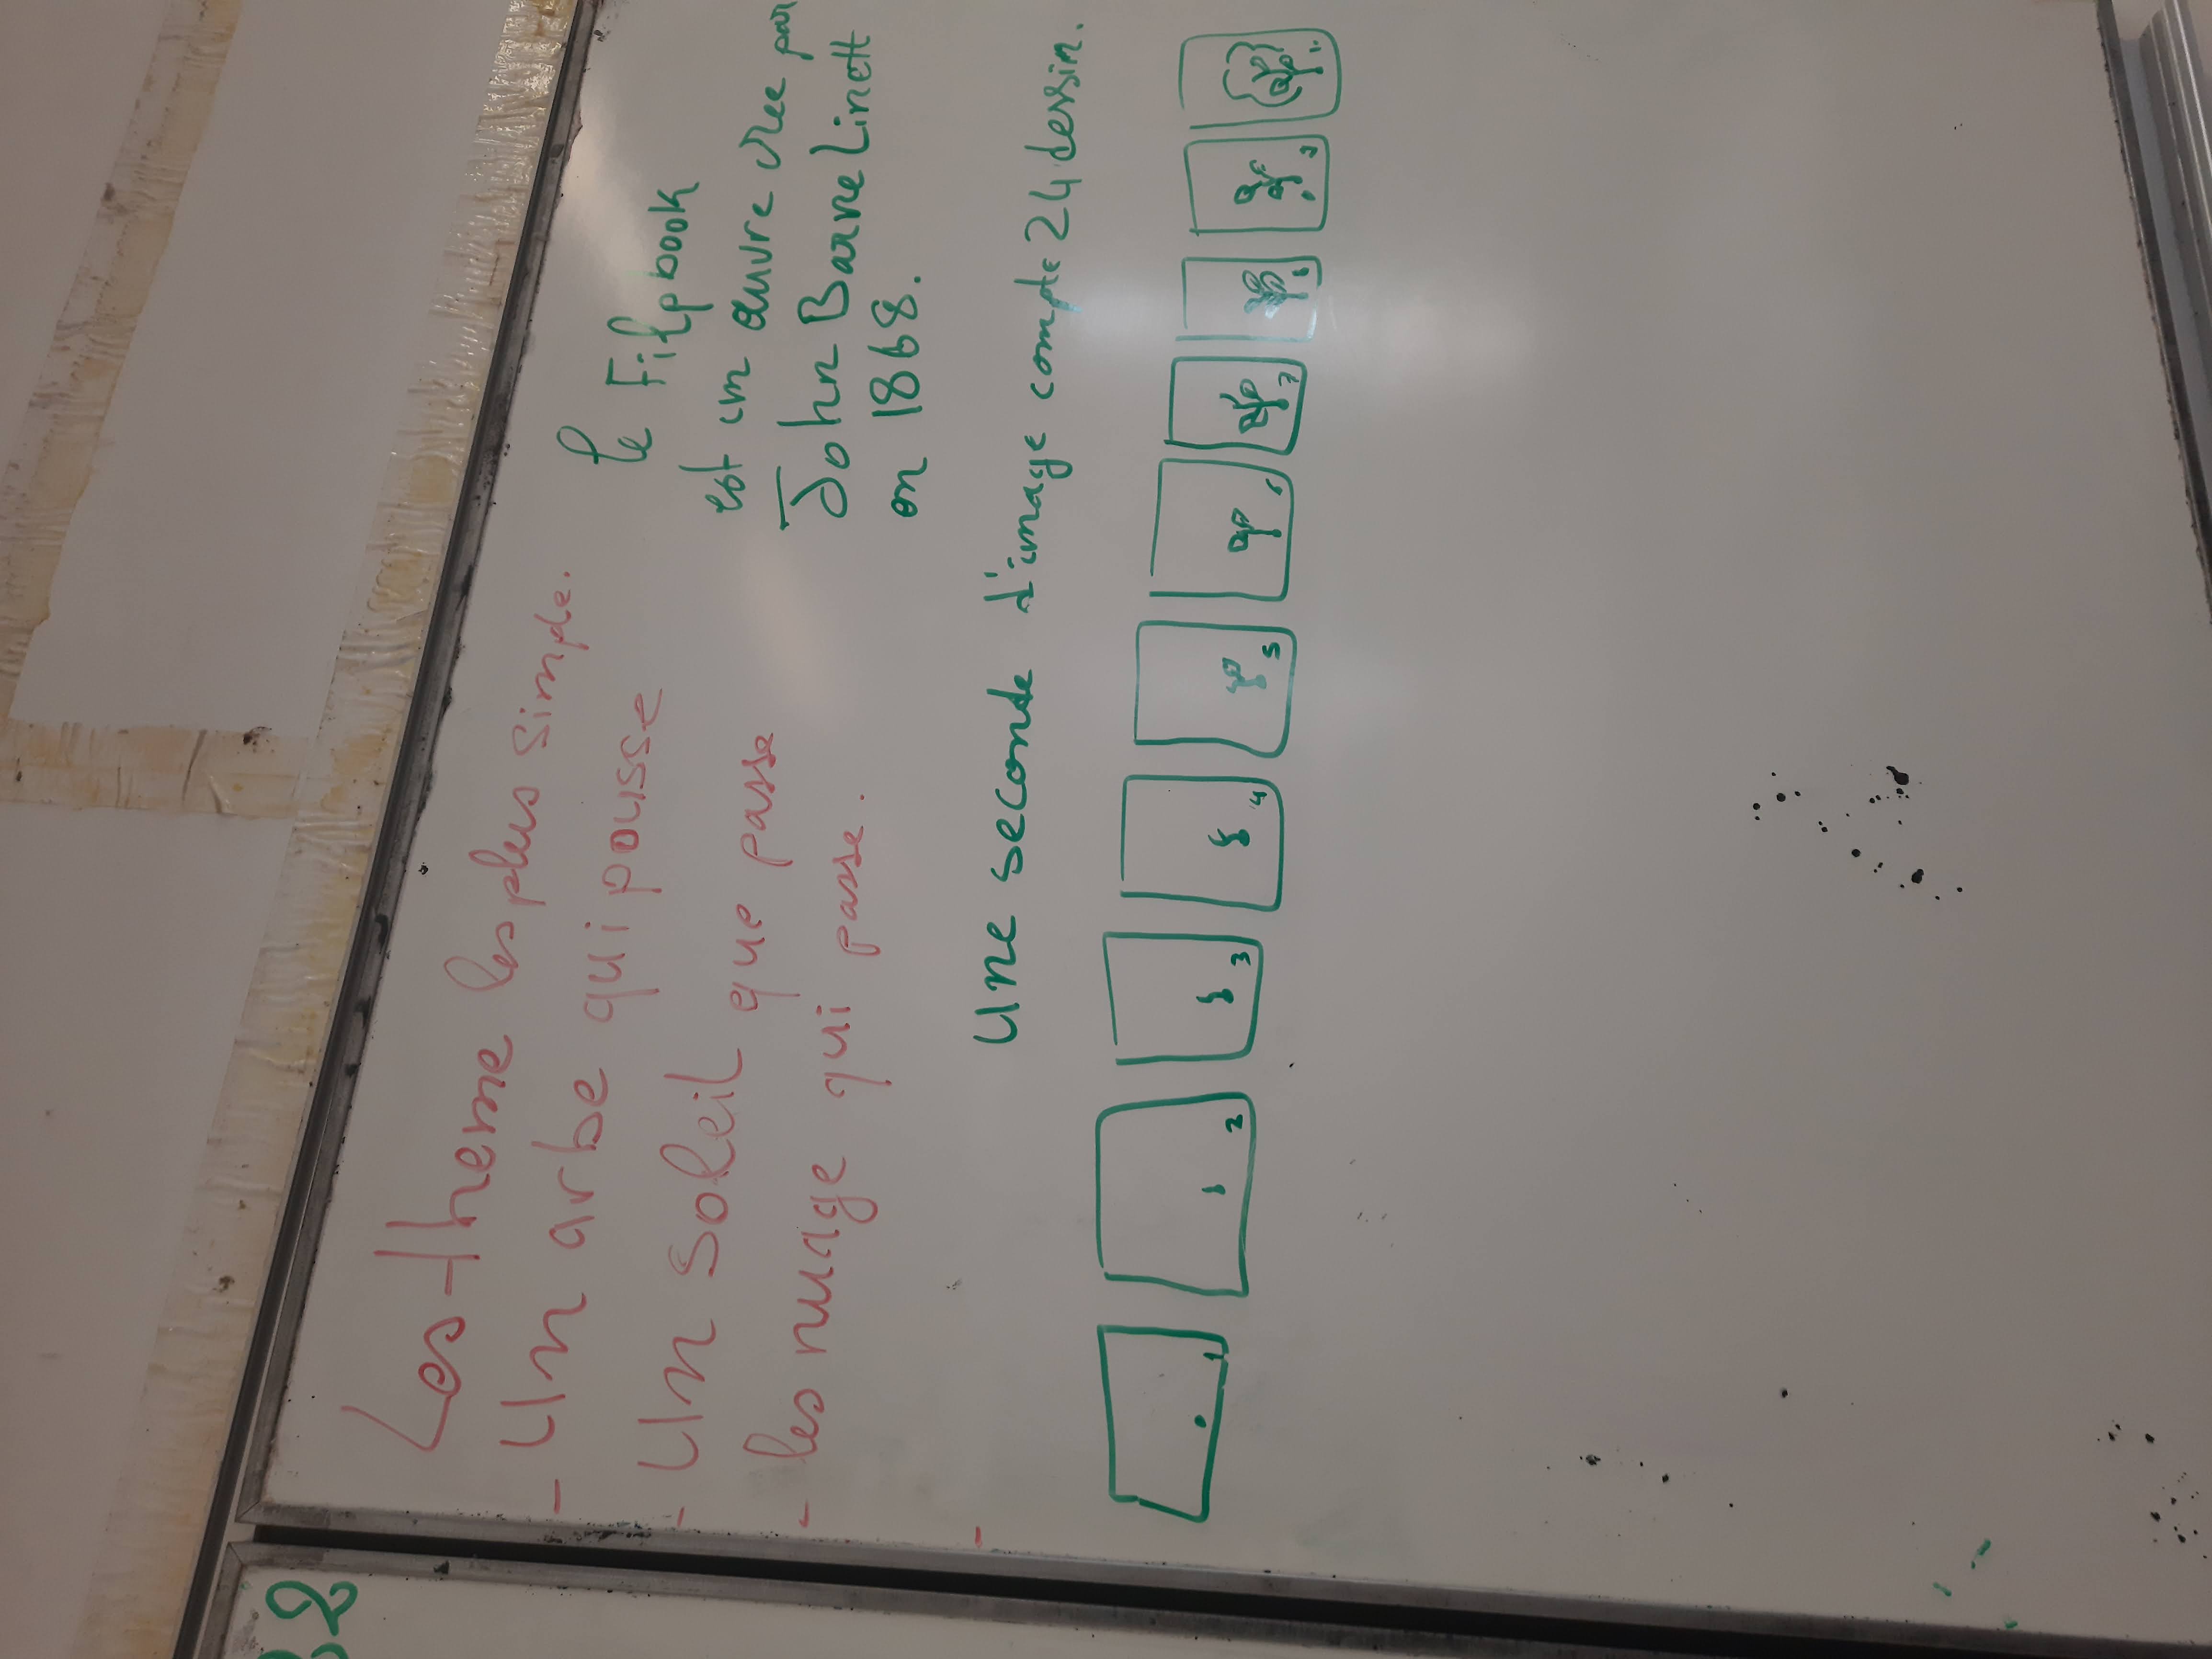 Les theme les plus simple.
- Un arbe qui pousse
- Un soleil que passe
- les nuage qui passe.
-
le Filpbook
est un œuvre crée par
John Barne Linett
en 1868.
Une seconde d'image compte 24 dessin.
1 2 3 4 5 6 7